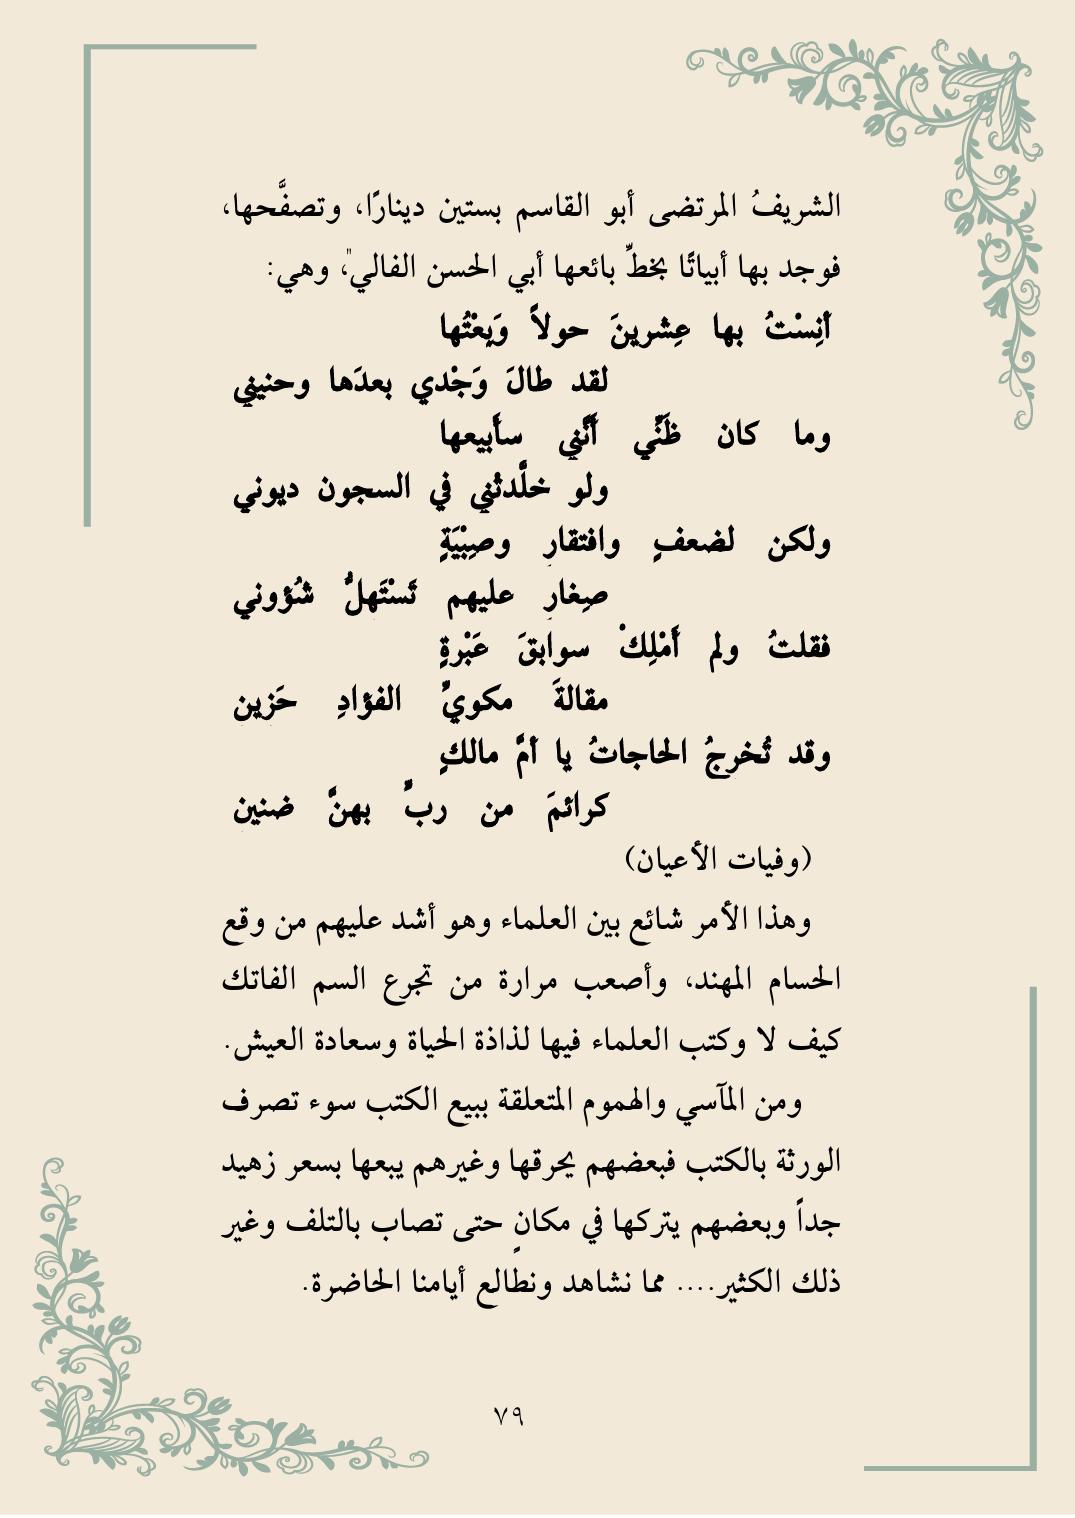 الشريفُ المرتضى أبو القاسم بستين دينارًا، وتصفَّحها،
فوجد بها أبياتًا بخطِّ بائعها أبي الحسن الفالي"، وهي:
أَنِسْتُ بها عِشرينَ حولاً وَبِعْتُها
لقد طالَ وَجْدي بعدَها وحنيني
وما كان ظَنِّي أَنَّني سأَبيعها
ولو خلَّدتْني في السجون ديوني
ولكن لضعفٍ وافتقارِ وصِبْيَةٍ
صِغارِ عليهم تَسْتَهِلُّ شُؤوني
فقلتُ ولم أَمْلِكْ سوابقَ عَبْرةٍ
مقالةَ مكويِّ الفؤادِ حَزِينِ
وقد تُخرجُ الحاجاتُ يا أمَّ مالكٍ
كرائمَ من ربٍّ بهنَّ ضنينِ
(وفيات الأعيان)
وهذا الأمر شائع بين العلماء وهو أشد عليهم من وقع
الحسام المهند، وأصعب مرارة من تجرع السم الفاتك
كيف لا وكتب العلماء فيها لذاذة الحياة وسعادة العيش.
ومن المآسي والهموم المتعلقة ببيع الكتب سوء تصرف
الورثة بالكتب فبعضهم يحرقها وغيرهم يبعها بسعر زهيد
جداً وبعضهم يتركها في مكانٍ حتى تصاب بالتلف وغير
ذلك الكثير.... مما نشاهد ونطالع أيامنا الحاضرة.
٧٩